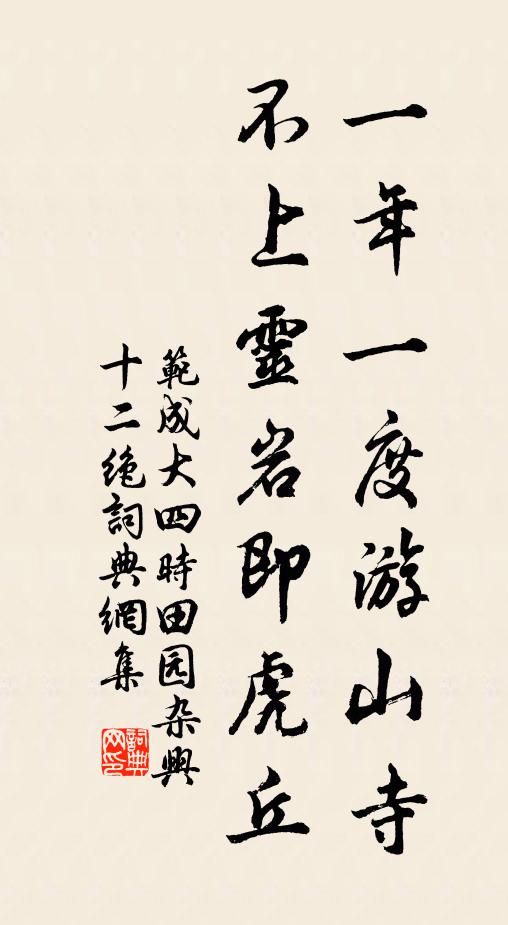 一年一度游山寺
不上靈岩即虎丘
範成大四時田园杂興
十二绝詞典網集
詞典
网印